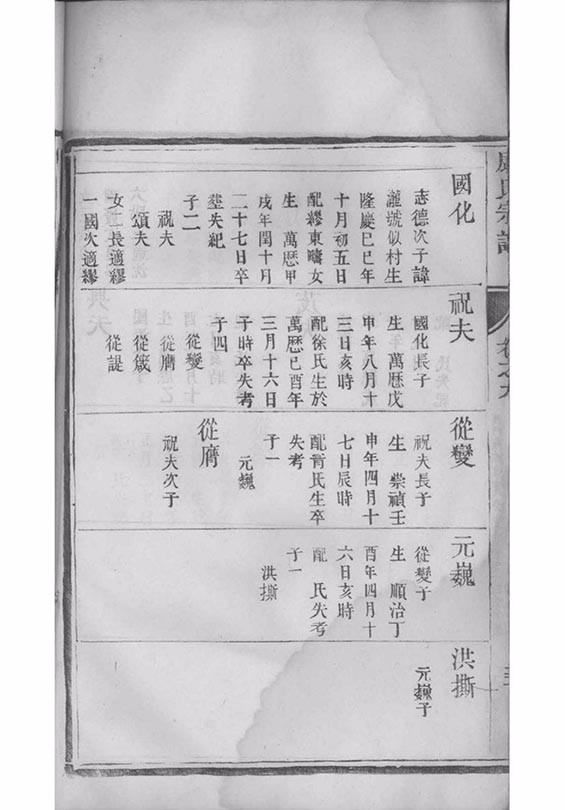 氏宗譜
卷之九
國化
志德次子諱
瀧號似村生
隆慶己巳年
十月初五日
配繆東疇女
生 萬歷甲
戌年閏十月
二十七日卒
塟失紀
子二
祝夫
頌夫
女二長適繆
一國次適繆
祝夫
國化長子
生萬歷戊
申年八月十
三日亥時
配徐氏生於
萬歷己酉年
三月十六日
子時卒失考
子四
從變
從膺
從箴
從諟
從變
祝夫長子
生 崇禎壬
申年四月十
七日辰時
配胥氏生卒
失考
子一
元巍
從膺
祝夫次子
元巍
從變子
生 順治丁
酉年四月十
六日亥時
配 氏失考
子一
洪撕
洪撕
元巍子